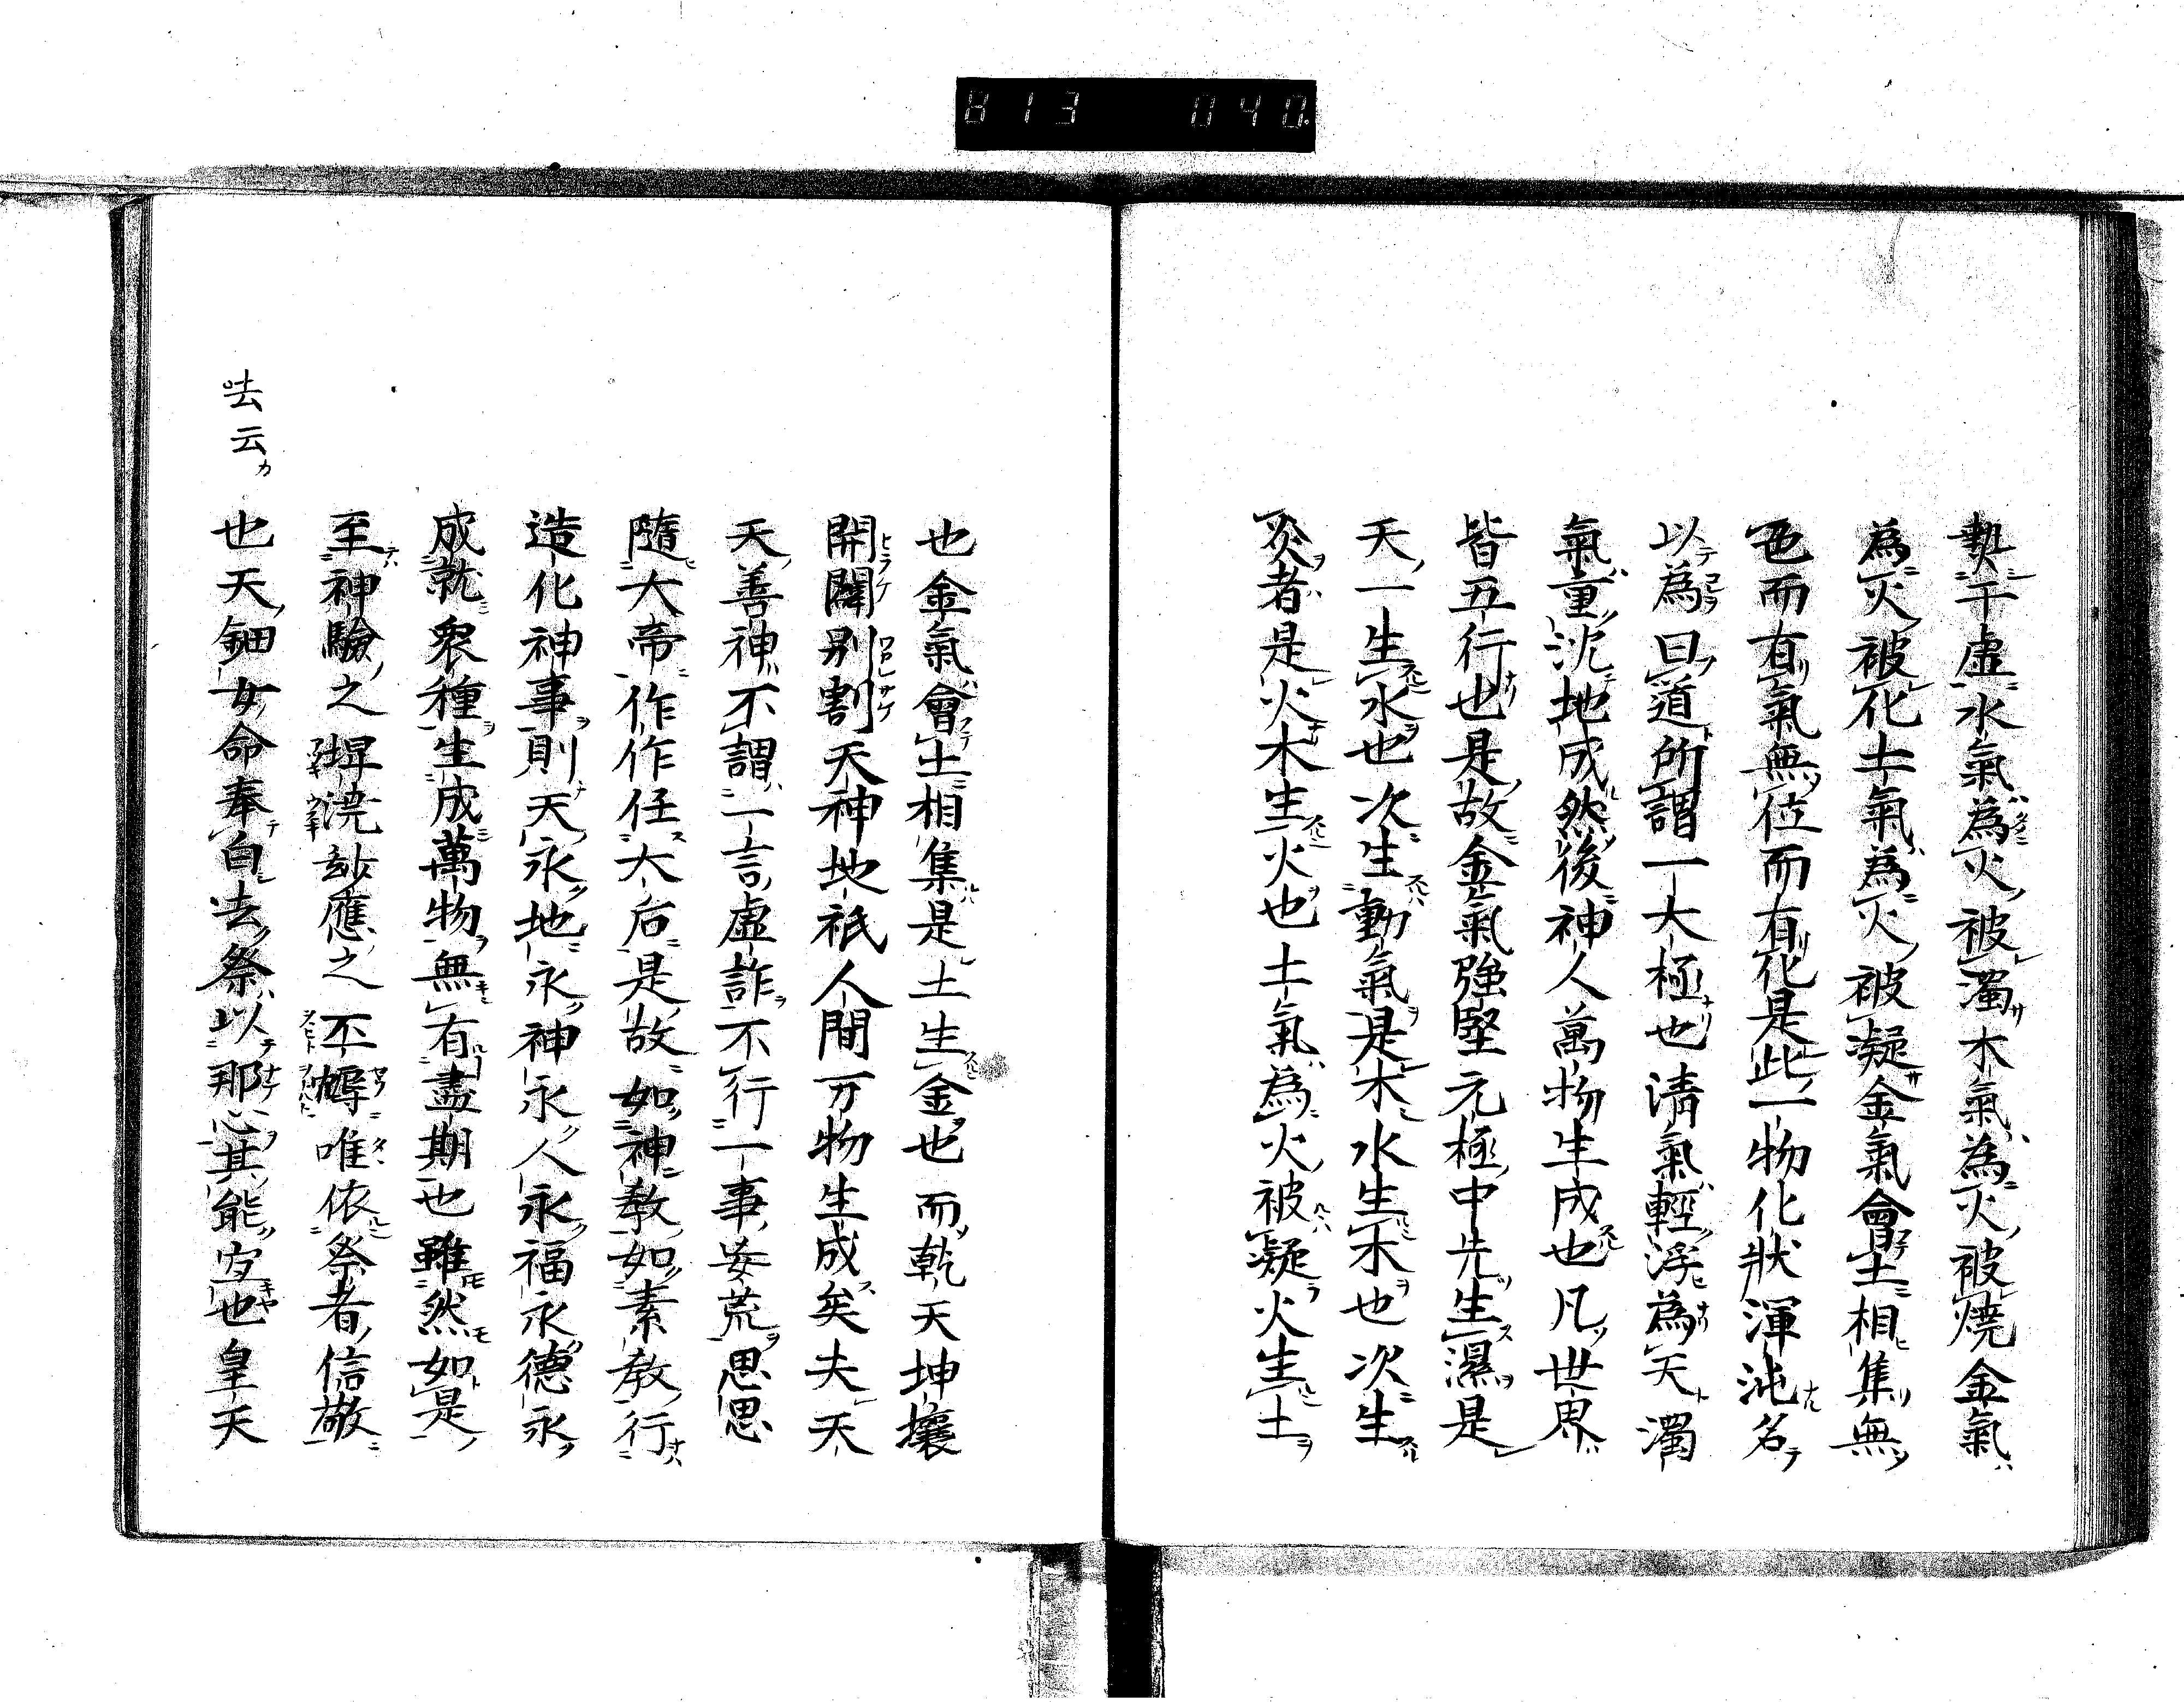 813 040.
執于虚水氣為灾被濁木氣為灾被焼金氣
為灾被化土氣為灾被凝金氣會土相集無
色而有氣無位而有化是此一物化状渾沌名
以為曰道所謂一大極也清氣輕浮為天濁
氣重沈地成然後神人萬物生成也凡世界
皆五行也是故金氣強堅元極中先生濕是
天一生水也次生動氣是木水生木也次生
炎者是火木生火也土氣為火被凝火生土
也金氣會土相集是土生金也而乾天坤壤
開闢別割天神地祇人間万物生成矣夫天
天善神不謂一言虚詐不行一事妄荒思思
隨大帝作作任大后是故如神教如素教行
造化神事則天永地永神永人永福永德永
成就衆種生成萬物無有盡期也雖然如是
至神驗之 應之不 唯依祭者信敬
也天鈿女命奉白去祭以那 其能 也皇天
呿云カ